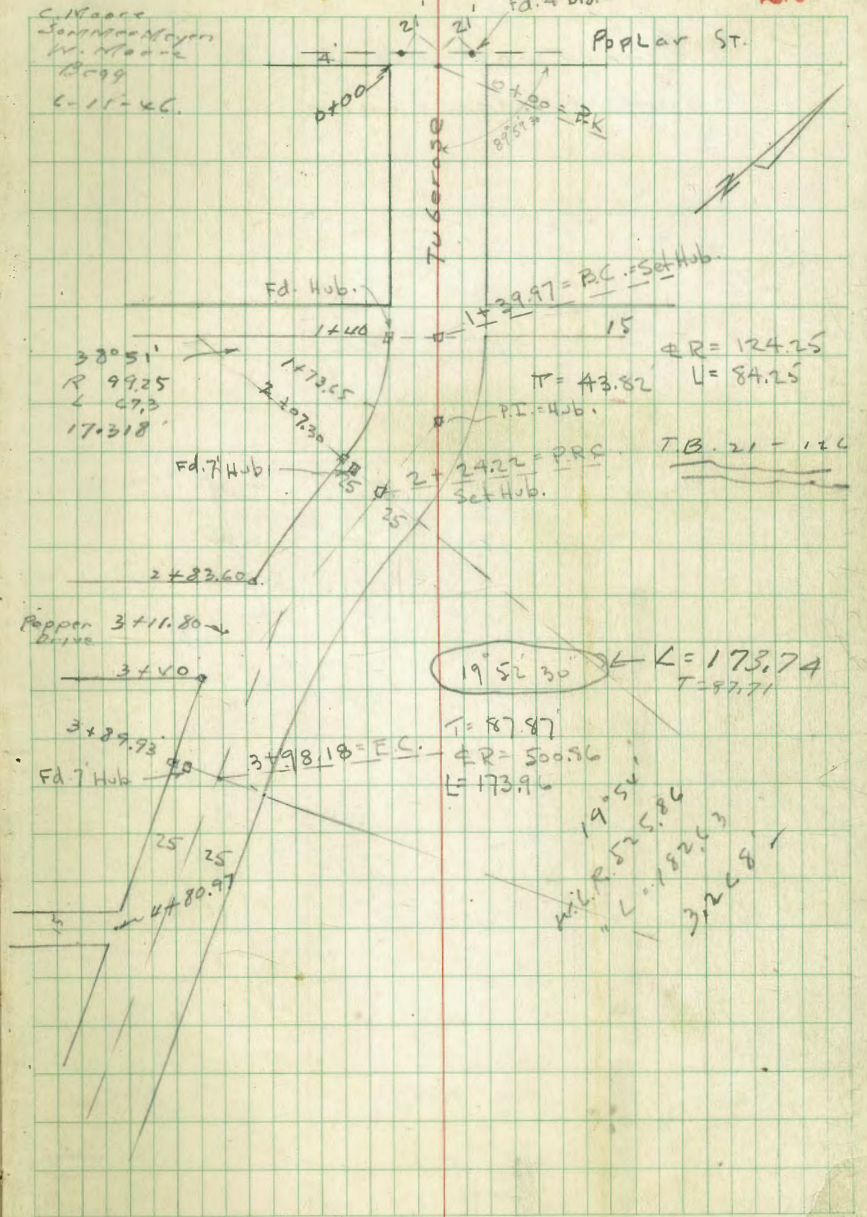 C. Moore
Sommermeyer
W. Moore
Begg
6-15-46.
21' 21'
Poplar St.
4'
0+00
0+00 = P.K
89°59'30"
Tuberose
N
Fd. Hub.
1+39.97 = B.C. = Set Hub.
1+40
15
38°51'
R 99.25
L 67.3
17.318'
1+73.65
2+07.30
₵ R = 124.25
L = 84.25
T = 43.82'
P.I. = Hub.
T.B. 21 - 126
Fd. 7' Hub
25
2+24.22 = P.R.C.
Set Hub.
25
2+83.60
Pepper Drive
3+11.80
3+40
19° 52' 30"
L = 173.74
T = 87.71
3+89.93
Fd. 7' Hub
3+98.18 = E.C.
T = 87.87'
₵ R = 500.86
L = 173.96
19°54'
W.L. R. 525.86
" L = 182.63
3.268'
25
25
4+80.97